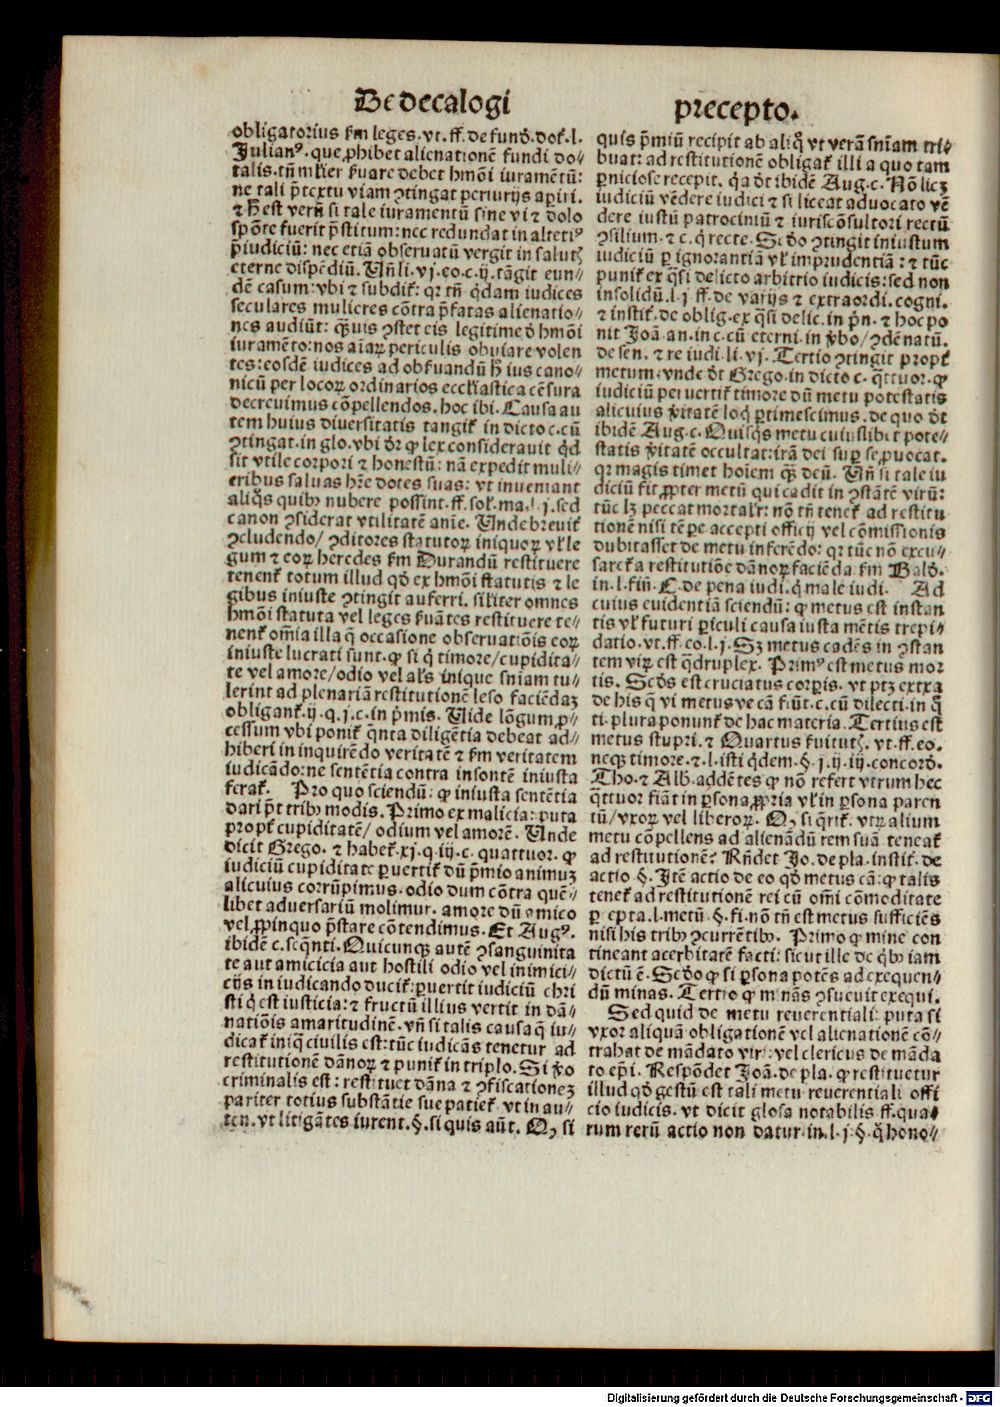 De decalogi precepto.
obligatorius ẜm leges. vt. ff. de fund̄. dot̄. l.
Julianꝰ. que ꝓhibet alienationē fundi do⸗
talis. tn̄ mlier ẜuare debet hmōi iuramētū:
ne tali p̄textu viam ꝯtingat periurijs aꝑiri.
⁊ hͦ est verū si tale iuramentū sine vi ⁊ dolo
spōte fuerit p̄stitum: nec redundat in alteriꝰ
p̄iudiciū: nec etiā obseruatū vergit in salutꝭ
eterne dispēdiū. Un̄. li. vj. eo. c. ij. tāgit eun⸗
dē casum: vbi ⁊ subdit̄: qꝛ tn̄ qͥdam iudices
seculares mulieres cōtra p̄fatas alienatio⸗
nes audiūt: qͣꝫuis ꝯstet eis legitime ð hmōi
iuramēto: nos aīaꝝ periculis obuiare volen
tes: eosdē iudices ad obẜuandū hͦ ius cano⸗
nicū per locoꝝ ordinarios ecclīastica cēsura
decreuimus cōpellendos. hoc ibi. Causa au
tem huius diuersitatis tangit̄ in dicto c. cū
ꝯtingat. in glo. vbi dr̄ ꝙ lex considerauit qd̄
sit vtile corpori ⁊ honestū: nā expedit muli⸗
eribus saluas hr̄e dotes suas: vt inueniant
aliqͦs quibꝰ nubere possint. ff. sol. ma. l. j. sed
canon ꝯsiderat vtilitatē anīe. Unde breuit̄
ꝯcludendo/ ꝯditores statutoꝝ iniquoꝝ vl̄ le
gum ⁊ eoꝝ heredes ẜm Durandū restituere
tenent̄ totum illud qd̄ ex hmōi statutis ⁊ le
gibus iniuste ꝯtingit auferri. silīter omnes
hmōi statuta vel leges ẜuātes restituere te⸗
nent̄ om̄ia illa q̄ occasione obseruatiōis eoꝝ
iniuste lucrati sunt. ꝙ si qͥ timore/ cupidita⸗
te vel amore/ odio vel als̄ inique snīam tu⸗
lerint ad plenariā restitutionē leso faciēdaꝫ
obligant̄. ij. q. j. c. in p̄mis. Uide lōgum ꝓ⸗
cessum vbi ponit̄ qͣnta diligētia debeat ad⸗
hiberi in inquirēdo veritatē ⁊ ẜm veritatem
iudicādo: ne sentētia contra insontē iniusta
ferat̄. Pro quo sciendū: ꝙ iniusta sentētia
dari pōt tribꝰ modis. Primo ex malicia: puta
propt̄ cupiditatē/ odium vel amorē. Unde
dicit Grego. ⁊ habet̄. xj. q. iij. c. quattuor. ꝙ
iudiciū cupiditate ꝑuertit̄ dū p̄mio animuꝫ
alicuius corrūpimus. odio dum cōtra quē⸗
libet aduersariū molimur. amore dū amico
vel ꝓpinquo p̄stare cōtendimus. Et Augꝰ.
ibidē c. seqn̄ti. Quicunqꝫ autē ꝯsanguinita
te aut amicicia aut hostili odio vel inimici⸗
cijs in iudicando ducit̄: ꝑuertit iudiciū chri
sti qͥ est iusticia: ⁊ fructū illius vertit in dā⸗
natiōis amaritudinē. vn̄ si talis causa q̄ iu⸗
dicat̄ iniq̄ ciuilis est: tūc iudicās tenetur ad
restitutionē dānoꝝ ⁊ punit̄ in triplo. Si ꝟo
criminalis est: restituet dāna ⁊ ꝯfiscationeꝫ
pariter totius substātie sue patiet̄. vt in au⸗
ten. vt litigātes iurent. §. si quis aūt. Qꝫ si
quis p̄miū recipit ab aliqͦ vt verā snīam tri⸗
buat: ad restitutionē obligat̄ illi a quo tam
ꝑniciose recepit. qꝛ dt̄ ibidē Aug. c. Nō licꝫ
iudiciū vēdere iudici ⁊ si liceat aduocato vē
dere iustū patrociniū ⁊ iuriscōsultori rectū
ꝯsilium. ⁊ c. qͥ recte. Secūdo ꝯtingit iniustum
iudiciū ꝑ ignorantiā vl̄ imprudentiā: ⁊ tūc
punit̄ ex qͣsi delicto arbitrio iudicis: sed non
insolidū. l. j. ff. de varijs ⁊ extraordi. cogni.
⁊ instit̄. de oblig. ex qͣsi delic. in prin̄. ⁊ hoc po
nit Joā. an. in c. cū eterni. in ꝟbo/ ꝯdēnatū.
de sen. ⁊ re iudi. li. vj. Tertio ꝯtingit propt̄
metum. vnde dt̄ Grego. in dicto c. qͣttuor. ꝙ
iudiciū peruertit̄ timore dū metu potestatis
alicuius ꝟitatē loqͥ ꝑtimescimus. de quo dt̄
ibidē Aug. c. Quisqͥs metu cuiuslibet pote⸗
statis ꝟitatē occultat: irā dei suꝑ se ꝓuocat.
qꝛ magis timet hoīem qͣꝫ deū. Un̄ si tale iu
diciū fit ꝓpter metū qui cadit in ꝯstātē virū:
tūc lꝫ peccat mortalr̄: nō tn̄ tenet̄ ad restitu
tionē nisi tēpe accepti officij vel cōmissionis
dubitasset de metu inferēdo: qꝛ tūc nō excu⸗
saret̄ a restitutiōe dānoꝝ faciēda ẜm Bald̄.
in. l. fin̄. C. de pena iudi. qͥ male iudi. Ad
cuius euidentiā sciendū: ꝙ metus est instan
tis vl̄ futuri ꝑiculi causa iusta mētis trepi⸗
datio. vt. ff. eo. l. j. Sꝫ metus cadēs in ꝯstan
tem viꝝ est qͣdruplex. Primꝰ est metus mor
tis. Secds̄ est cruciatus corꝑis. vt ptꝫ extra
de his q̄ vi metusve cā fiūt. c. cū dilecti. in qͥ
ti. plura ponunt̄ de hac materia. Tertius est
metus stupri. ⁊ Quartus ẜuitutꝭ. vt. ff. eo.
neqꝫ timore. ⁊. l. isti qͥdem. §. j. ij. iij. concord̄.
Tho. ⁊ Alb. addētes ꝙ nō refert vtrum hec
qͣttuor fiāt in ꝑsona ꝓpria vl̄ in ꝑsona paren
tū/ vxoꝝ vel liberoꝝ. Qꝫ si qͥrit̄. vtꝝ alium
metu cōpellens ad alienādū rem suā teneat̄
ad restitutionē? Rn̄det Jo. de pla. instit̄. de
actio. §. Itē actio de eo qd̄ metus cā: ꝙ talis
tenet̄ ad restitutionē rei cū om̄i cōmoditate
ꝑcepta. l. metū. §. fi. nō tn̄ est metus sufficiēs
nisi his tribꝰ ꝯcurrētibꝰ. Primo ꝙ mine con
tineant acerbitatē facti: sicut ille de qͥbꝰ iam
dictū ē. Secd̄o ꝙ si ꝑsona potēs ad exequen⸗
dū minas. Tertio ꝙ minās ꝯsueuit exequi.
Sed quid de metu reuerentiali: puta si
vxor aliquā obligationē vel alienationē cō⸗
trahat de mādato viri: vel clericus de māda
to ep̄i. Respōdet Joā. de pla. ꝙ restituetur
illud qd̄ gestū est tali metu reuerentiali offi
cio iudicis. vt dicit glosa notabilis ff. qua⸗
rum rerū actio non datur. in. l. j. §. q̄ hono⸗
Digitalisierung gefördert durch die Deutsche Forschungsgemeinschaft - DFG